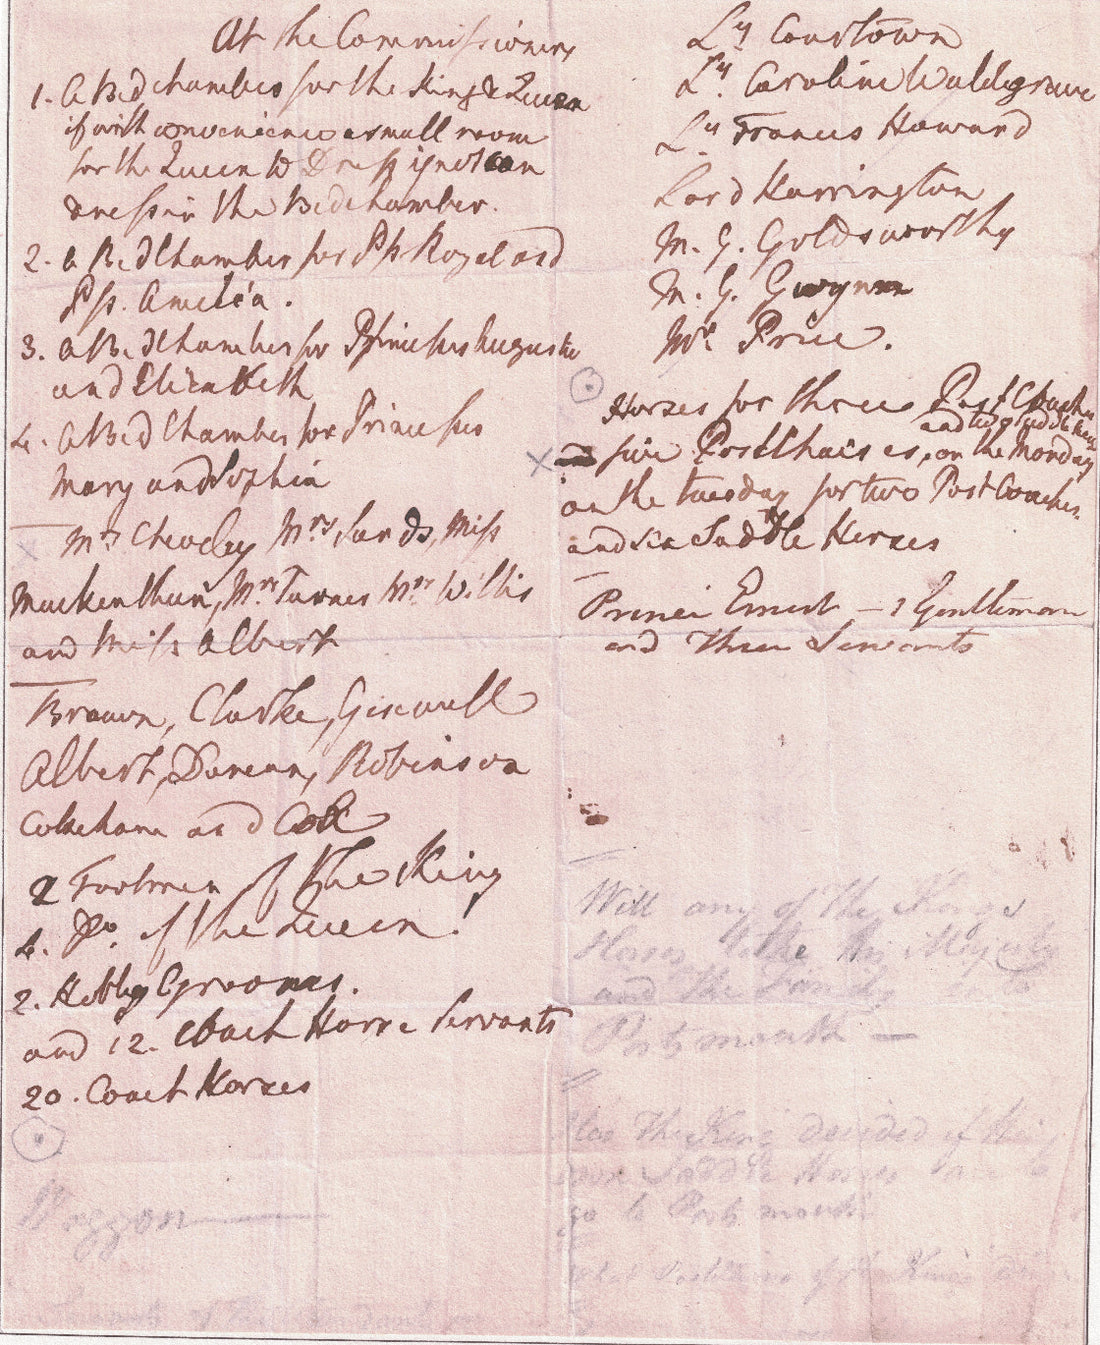 At the Commissioners
1. A Bedchamber for the King & Queen
if with convenience a small room
for the Queen to Dress if not can
dress in the Bedchamber.
2. a Bedchamber for Pss Royal and
Pss. Amelia.
3. A Bedchamber for Princesses Augusta
and Elizabeth
4. A Bedchamber for Princesses
Mary and Sophia
Mrs Cheveley Mrs Sands, Miss
Mackenthun, Mrs Turner Mrs Willis
and Miss Albert
Brawn, Clarke, Giswell
Albert, Duncan, Robinson
and Cox
2 Footmen of the King
4. Do. of the Queen!
2. Hobby Grooms.
and 12. Coach Horse Servants
20. Coach Horses
Waggon
Ly Courtown
Ly. Caroline Waldegrave
Ly Francis Howard
Lord Harrington
M. G. Goldsworthy
M. G. Gwynn
Mr. Price.
Horses for three Post Coaches
and two Saddle Horses
five Post Chaises, on the Monday
on the tuesday for two Post Coaches.
and six Saddle Horses
Prince Ernest – 1 Gentleman
and Three Servants
Will any of The Kings
Horses take his Majesty
and the Family into
Portsmouth —
Has The King decided if his
own Saddle Horses are to
go to Portsmouth
What of the King's